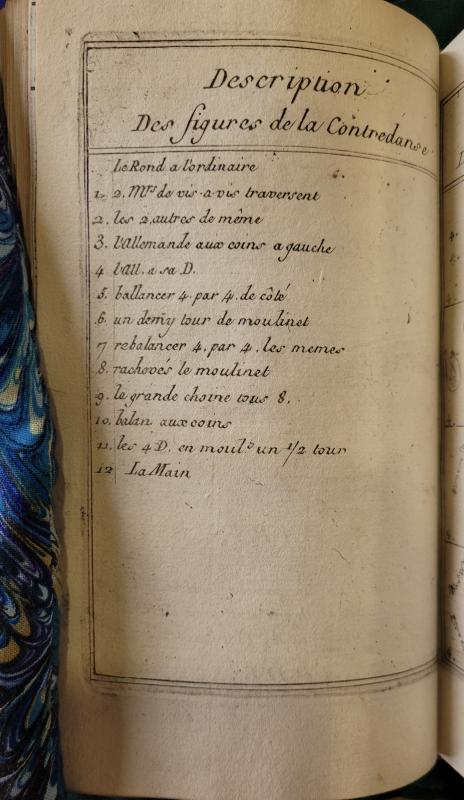 Description
Des figures de la Contredanse
Le Rond a l'ordinaire
1. 2. Mrs de vis-a-vis traversent
2. les 2 autres de même
3. l'Allemande aux coins a gauche
4. l'all. a sa D.
5. ballancer 4. par 4. de côté
6. un demy tour de moulinet
7 rebalancer 4. par 4. les memes
8. rachevés le moulinet
9. la grande chaine tous 8.
10. balan aux coins
11. les 4 D. en moul.t un 1/2 tour
12 La Main